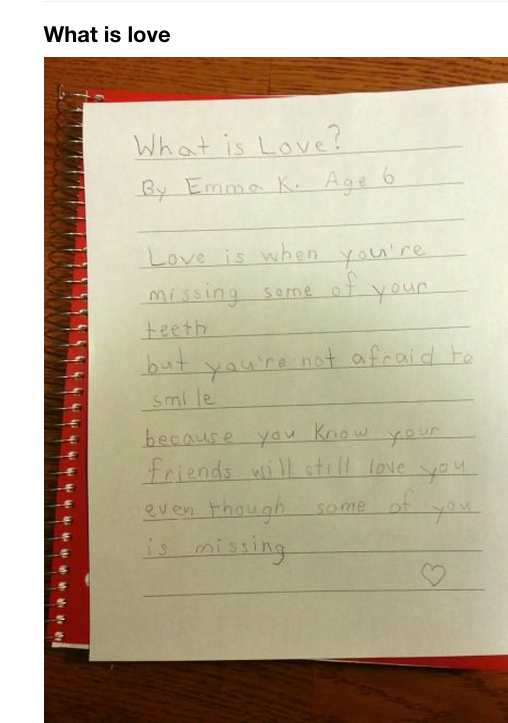 What is love
What is Love?
By Emma K. Age 6
Love is when you're
missing some of your
teeth
but you're not afraid to
smile
because you know your
friends will still love you
even though some of you
is missing